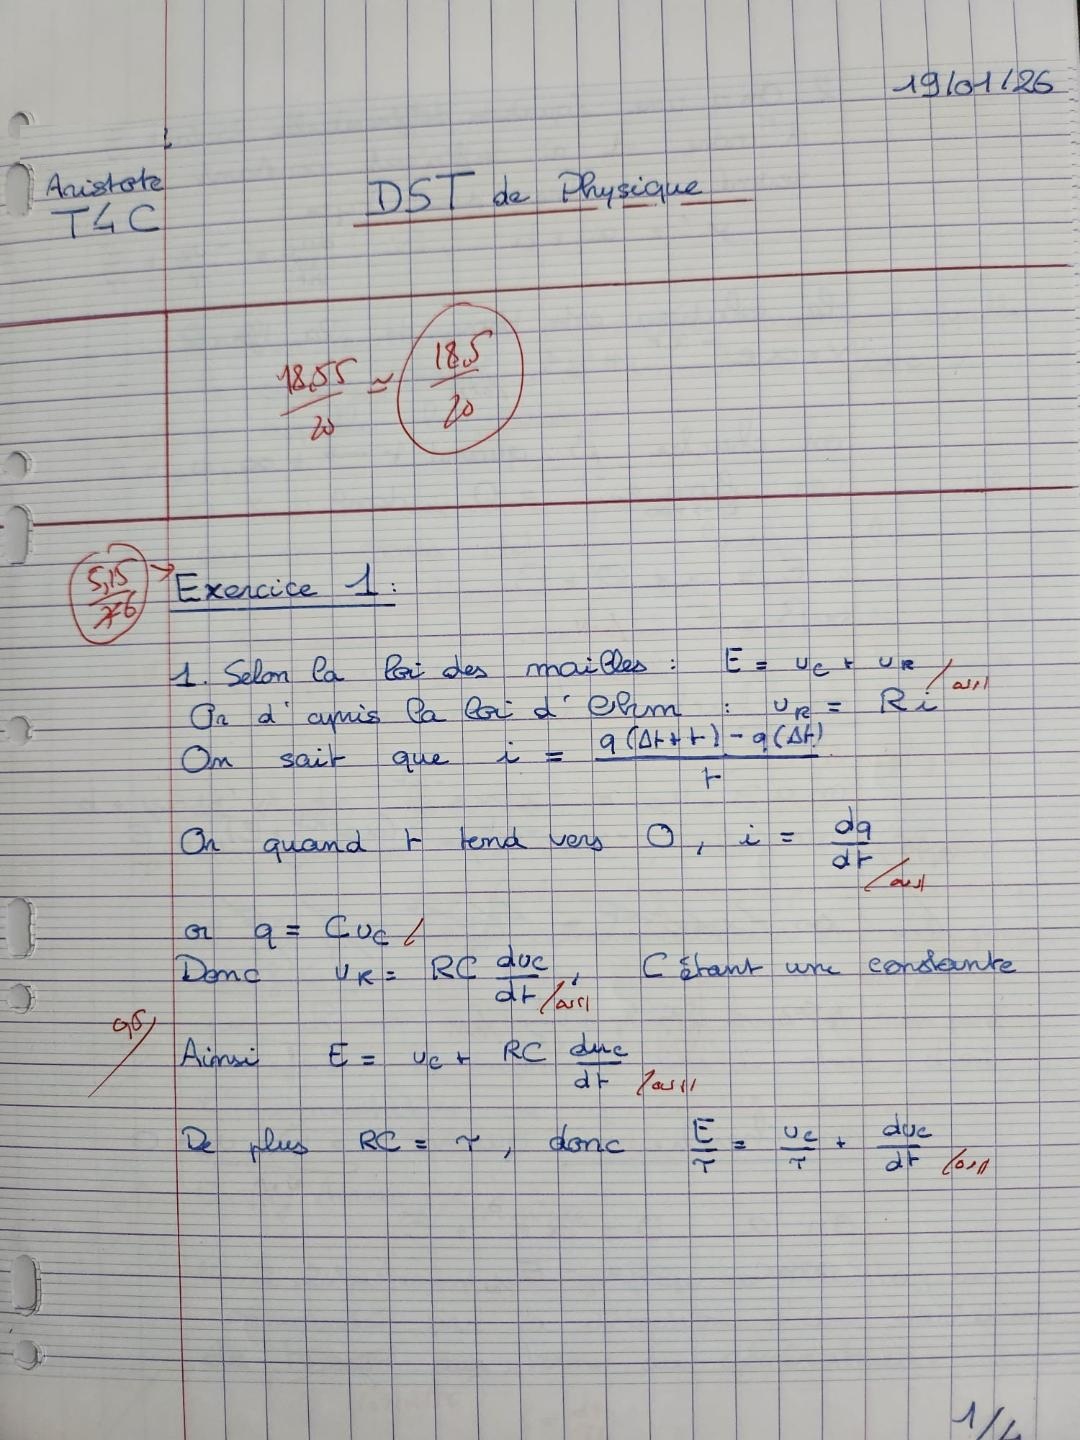 19/01/26
Aristote
T4C
DST de Physique
18,55/20 ≃ 18,5/20
5,15/6
Exercice 1 :
1. Selon la loi des mailles : E = uc + uR
Or d'après la loi d'Ohm : uR = Ri
On sait que i = (q(Δt+t) - q(Δt))/t
Or quand t tend vers 0, i = dq/dt
or q = Cuc
Donc uR = RC duc/dt, C étant une constante
0,5
Ainsi E = uc + RC duc/dt
De plus RC = τ, donc E/τ = uc/τ + duc/dt